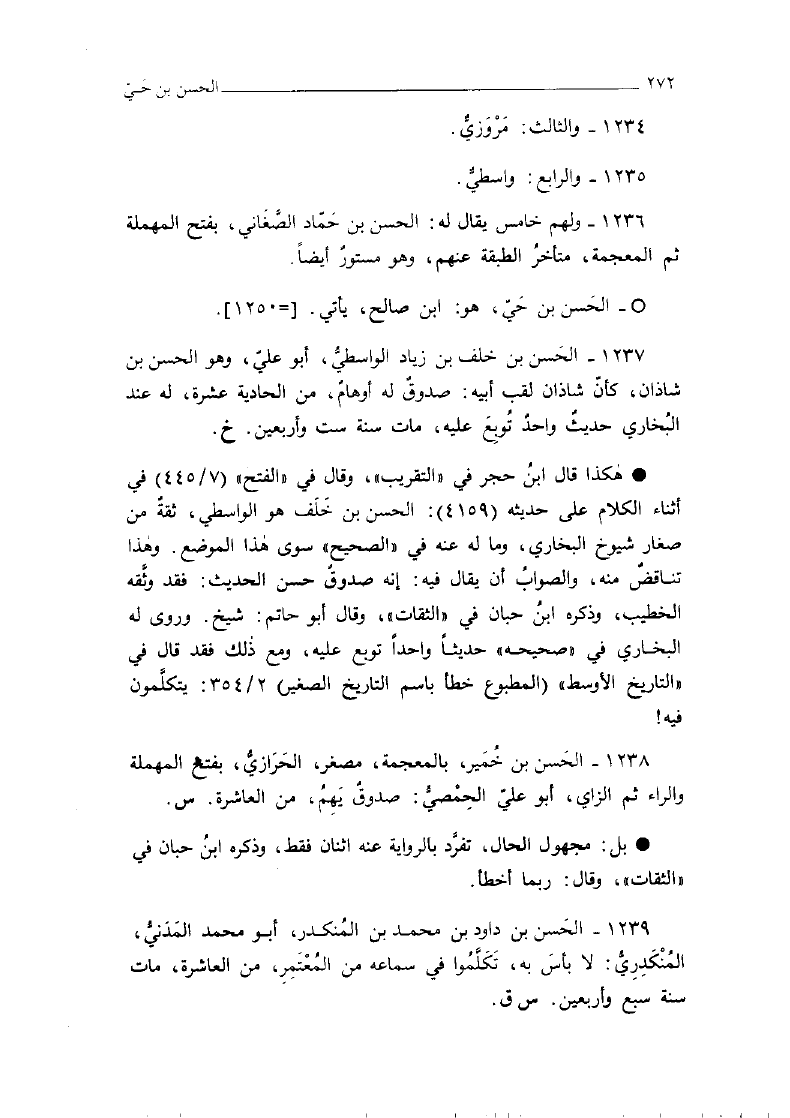 ٢٧٢ الحسن بن حَيّ
١٢٣٤ ـ والثالث: مَرْوَزيٌّ.
١٢٣٥ ـ والرابع: واسطيٌّ.
١٢٣٦ ـ ولهم خامس يقال له: الحسن بن حَمّاد الصَّغَاني، بفتح المهملة
ثم المعجمة، متأخرُ الطبقة عنهم، وهو مستورٌ أيضاً.
O ـ الحَسن بن حَيّ، هو: ابن صالح، يأتي. [=١٢٥٠].
١٢٣٧ ـ الحَسن بن خلف بن زياد الواسطيُّ، أبو عليّ، وهو الحسن بن
شاذان، كأنّ شاذان لقب أبيه: صدوقٌ له أوهامٌ، من الحادية عشرة، له عند
البُخاري حديثٌ واحدٌ تُوبِعَ عليه، مات سنة ست وأربعين. خ.
● هٰكذا قال ابنُ حجر في «التقريب»، وقال في «الفتح» (٧/٤٤٥) في
أثناء الكلام على حديثه (٤١٥٩): الحسن بن خَلَف هو الواسطي، ثقةٌ من
صغار شيوخ البخاري، وما له عنه في «الصحيح» سوى هٰذا الموضع. وهٰذا
تناقضٌ منه، والصوابُ أن يقال فيه: إنه صدوقٌ حسن الحديث: فقد وثَّقه
الخطيب، وذكره ابنُ حبان في «الثقات»، وقال أبو حاتم: شيخ. وروى له
البخاري في «صحيحه» حديثاً واحداً توبع عليه، ومع ذٰلك فقد قال في
«التاريخ الأوسط» (المطبوع خطأ باسم التاريخ الصغير) ٢/٣٥٤: يتكلَّمون
فيه!
١٢٣٨ ـ الحَسن بن خُمَير، بالمعجمة، مصغر، الحَرَازيُّ، بفتح المهملة
والراء ثم الزاي، أبو عليّ الحِمْصيُّ: صدوقٌ يَهِمُ، من العاشرة. س.
● بل: مجهول الحال، تفرَّد بالرواية عنه اثنان فقط، وذكره ابنُ حبان في
«الثقات»، وقال: ربما أخطأ.
١٢٣٩ ـ الحَسن بن داود بن محمد بن المُنكدر، أبو محمد المَدَنيُّ،
المُنْكَدِرِيُّ: لا بأسَ به، تَكَلَّمُوا في سماعه من المُعْتَمِرِ، من العاشرة، مات
سنة سبع وأربعين. س ق.